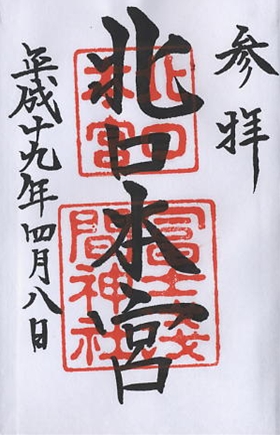 参拝
北口本宮
北口
本宮
冨士浅
間神社
平成十九年四月八日